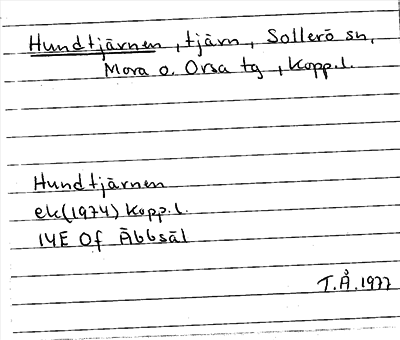 Hundtjärnen, tjärn, Sollerö sn,
Mora o. Orsa tg, Kopp.l.
Hundtjärnen
ek(1974) Kopp.l.
14E 0f Äbbsäl
T.Å.1977